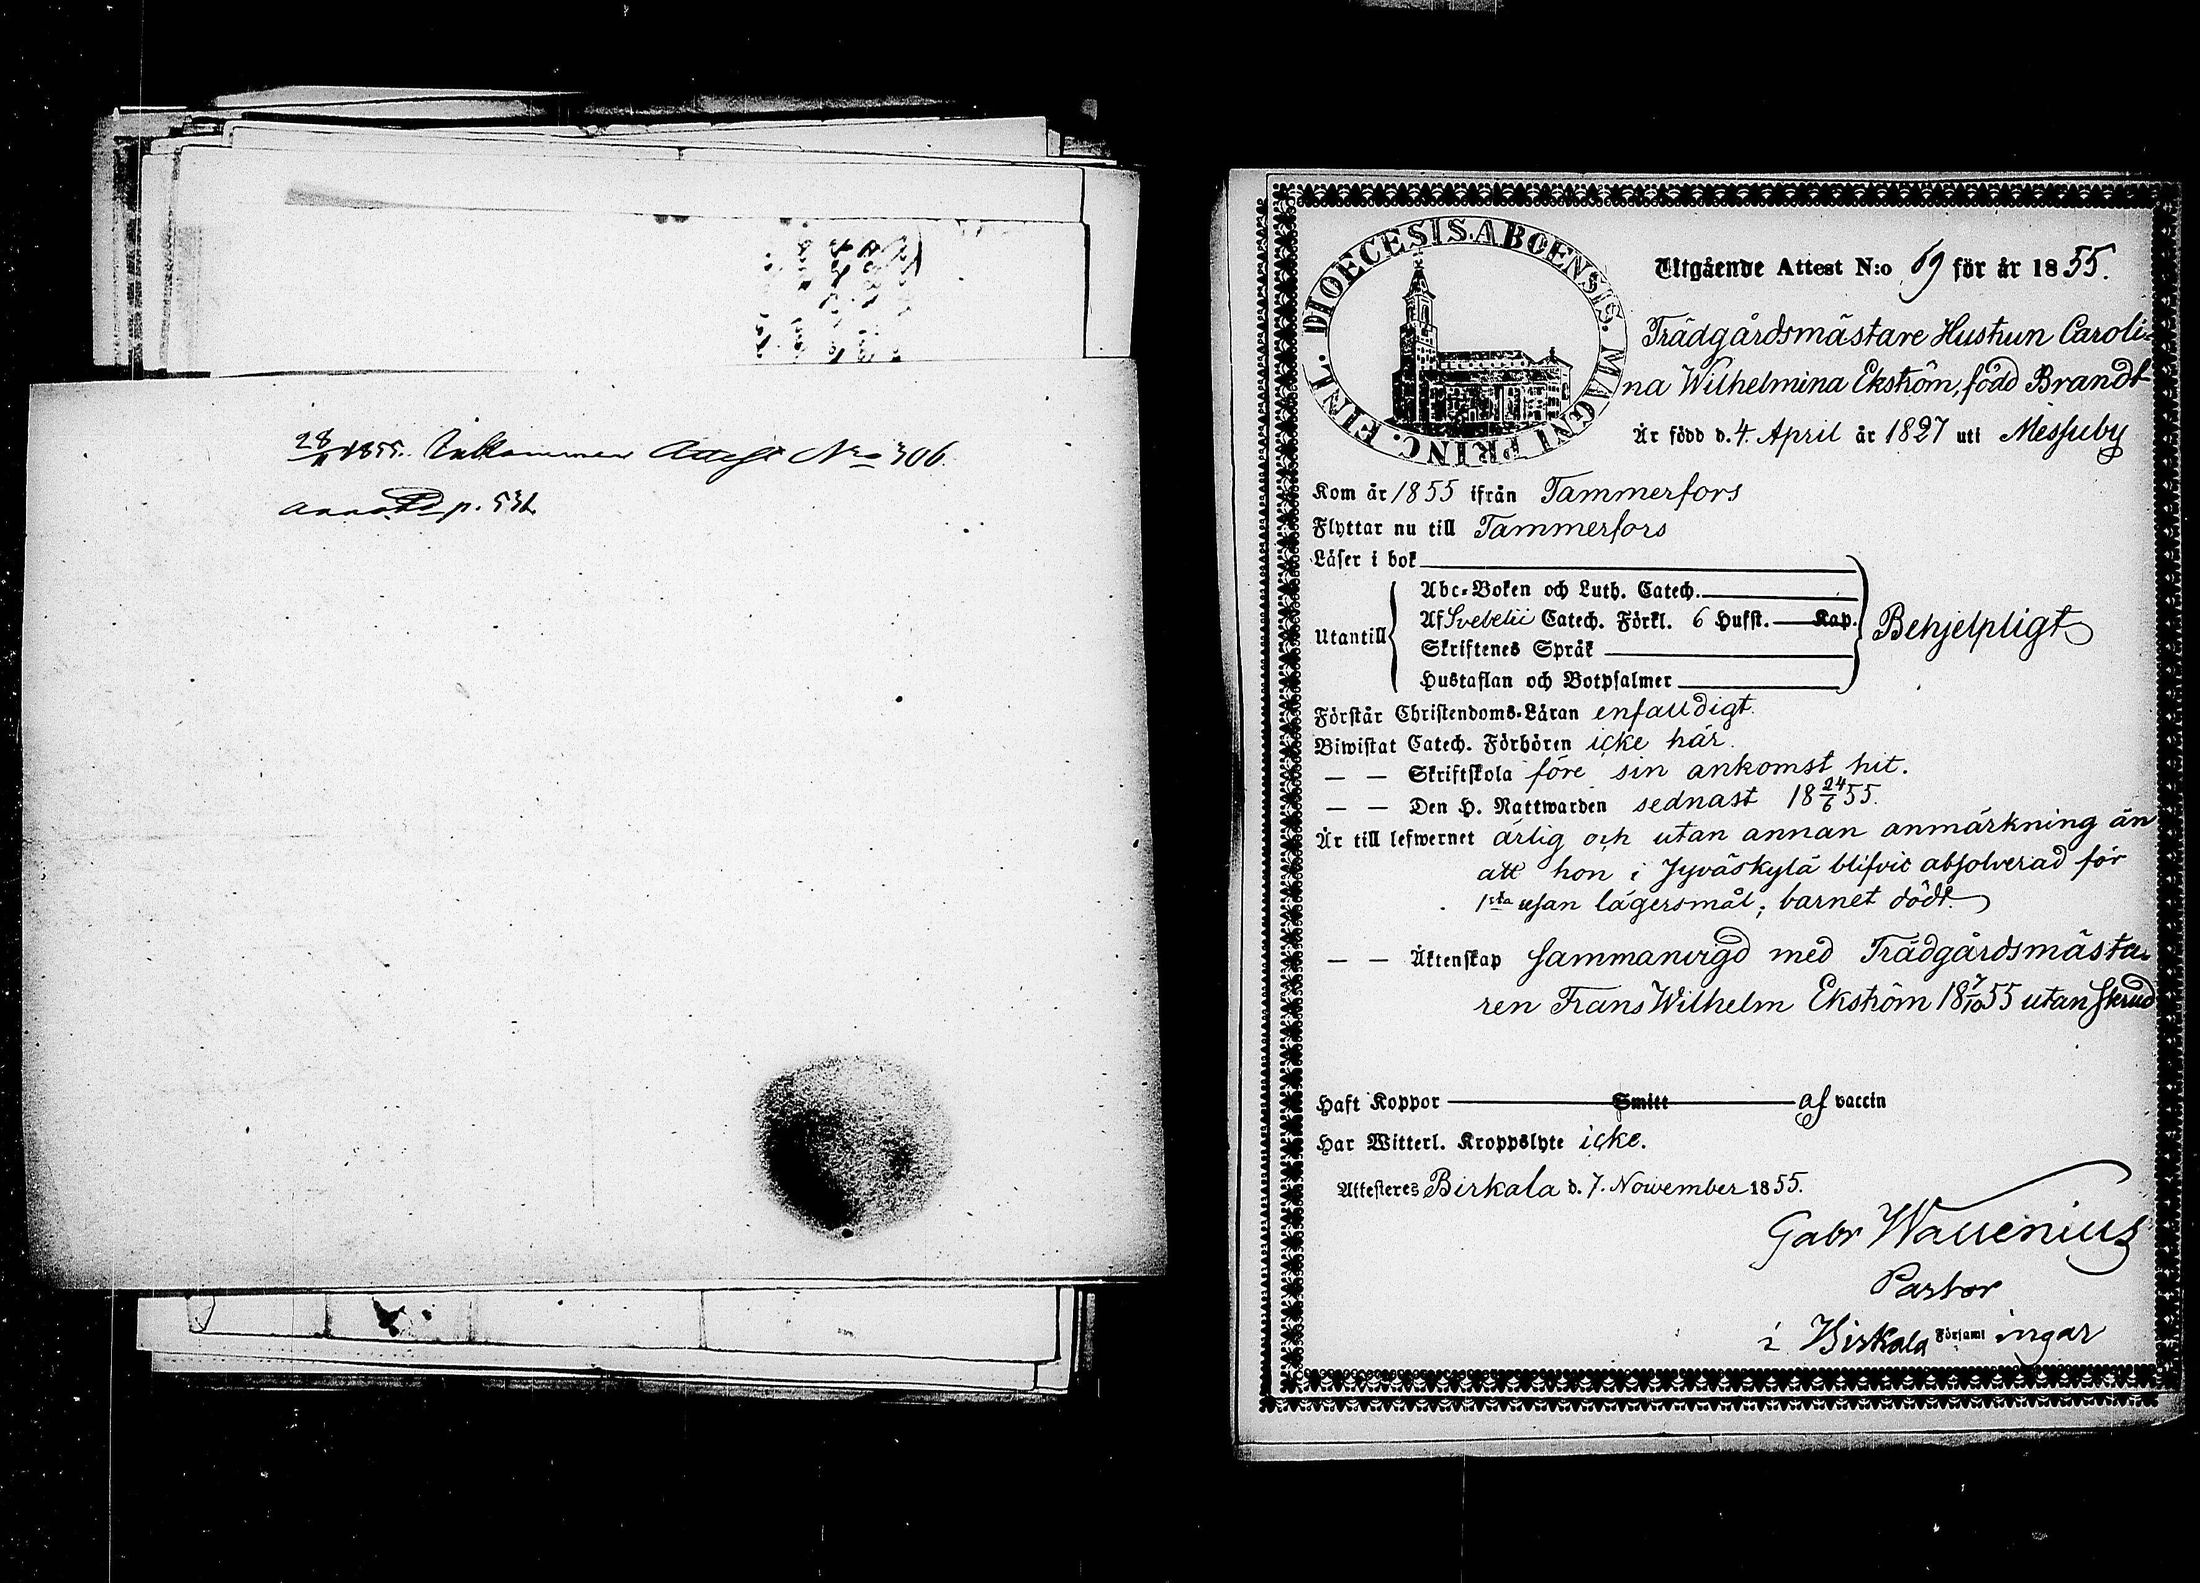 28/11 1855. Inkommen Attest No 306.
annot. p. 531.
DIOECESIS. ABOENSIS. MAGNI PRINC. FINL.
Utgående Attest N:o 69 för år 1855.
Trädgårdsmästare Hustrun Caroli-
na Wilhelmina Ekström, född Brandt
Är född d. 4. April år 1827 uti Messuby
Kom år 1855 ifrån Tammerfors
Flyttar nu till Tammerfors
Läser i bok
Abc-Boken och Luth. Catech.
Utantill Af Svebelii Catech. Förkl. 6 Hufst. Kap. Behjelpligt
Skriftenes Språk
Hustaflan och Botpsalmer
Förstår Christendoms-Läran enfaldigt.
Biwistat Catech. Förhören icke här.
— — Skriftskola före sin ankomst hit.
— — Den H. Nattwarden sednast 18 24/6 55.
Är till lefwernet ärlig och utan annan anmärkning än
att hon i Jyväskylä blifvit absolverad för
1sta resan lägersmål; barnet dödt.
— — Äktenskap sammanvigd med Trädgårdsmästa-
ren Frans Wilhelm Ekström 18 7/10 55 utan skrud
Haft Koppor Smitt af vaccin
Har Witterl. Kroppslyte icke.
Attesteres Birkala d. 7. November 1855.
Gabr Wallenius
Pastor
i Birkala Församl ingar